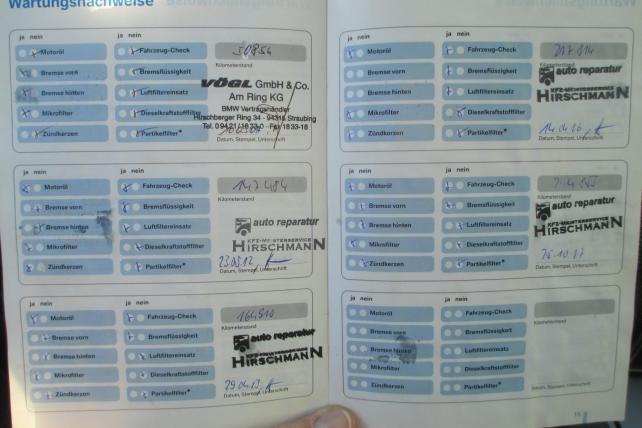 Wartungsnachweise
ja nein
Motoröl
Fahrzeug-Check
Bremse vorn
Bremsflüssigkeit
Kilometerstand
Bremse hinten
Luftfiltereinsatz
Mikrofilter
Dieselkraftstofffilter
Zündkerzen
Partikelfilter*
VÖGL GmbH & Co.
Am Ring KG
BMW Vertragshändler
Hirschberger Ring 34 - 94315 Straubing
Datum, Stempel, Unterschrift
ja nein
ja nein
Motoröl
Fahrzeug-Check
147484
Bremse vorn
Bremsflüssigkeit
Kilometerstand
Bremse hinten
Luftfiltereinsatz
Mikrofilter
Dieselkraftstofffilter
Zündkerzen
Partikelfilter*
auto reparatur
KFZ-MEISTERSERVICE
HIRSCHMANN
23.05.12
Datum, Stempel, Unterschrift
ja nein
ja nein
Motoröl
Fahrzeug-Check
164910
Bremse vorn
Bremsflüssigkeit
Kilometerstand
Bremse hinten
Luftfiltereinsatz
Mikrofilter
Dieselkraftstofffilter
Zündkerzen
Partikelfilter*
auto reparatur
HIRSCHMANN
Datum, Stempel, Unterschrift
ja nein
ja nein
Motoröl
Fahrzeug-Check
217 814
Bremse vorn
Bremsflüssigkeit
Kilometerstand
Bremse hinten
Luftfiltereinsatz
Mikrofilter
Dieselkraftstofffilter
Zündkerzen
Partikelfilter*
auto reparatur
KFZ-MEISTERSERVICE
HIRSCHMANN
Datum, Stempel, Unterschrift
ja nein
ja nein
Motoröl
Fahrzeug-Check
Bremse vorn
Bremsflüssigkeit
Bremse hinten
Luftfiltereinsatz
Mikrofilter
Dieselkraftstofffilter
Zündkerzen
Partikelfilter*
auto reparatur
KFZ-MEISTERSERVICE
HIRSCHMANN
Datum, Stempel, Unterschrift
ja nein
ja nein
Motoröl
Fahrzeug-Check
Bremse vorn
Bremsflüssigkeit
Kilometerstand
Bremse hinten
Luftfiltereinsatz
Mikrofilter
Dieselkraftstofffilter
Zündkerzen
Partikelfilter*
Datum, Stempel, Unterschrift
15